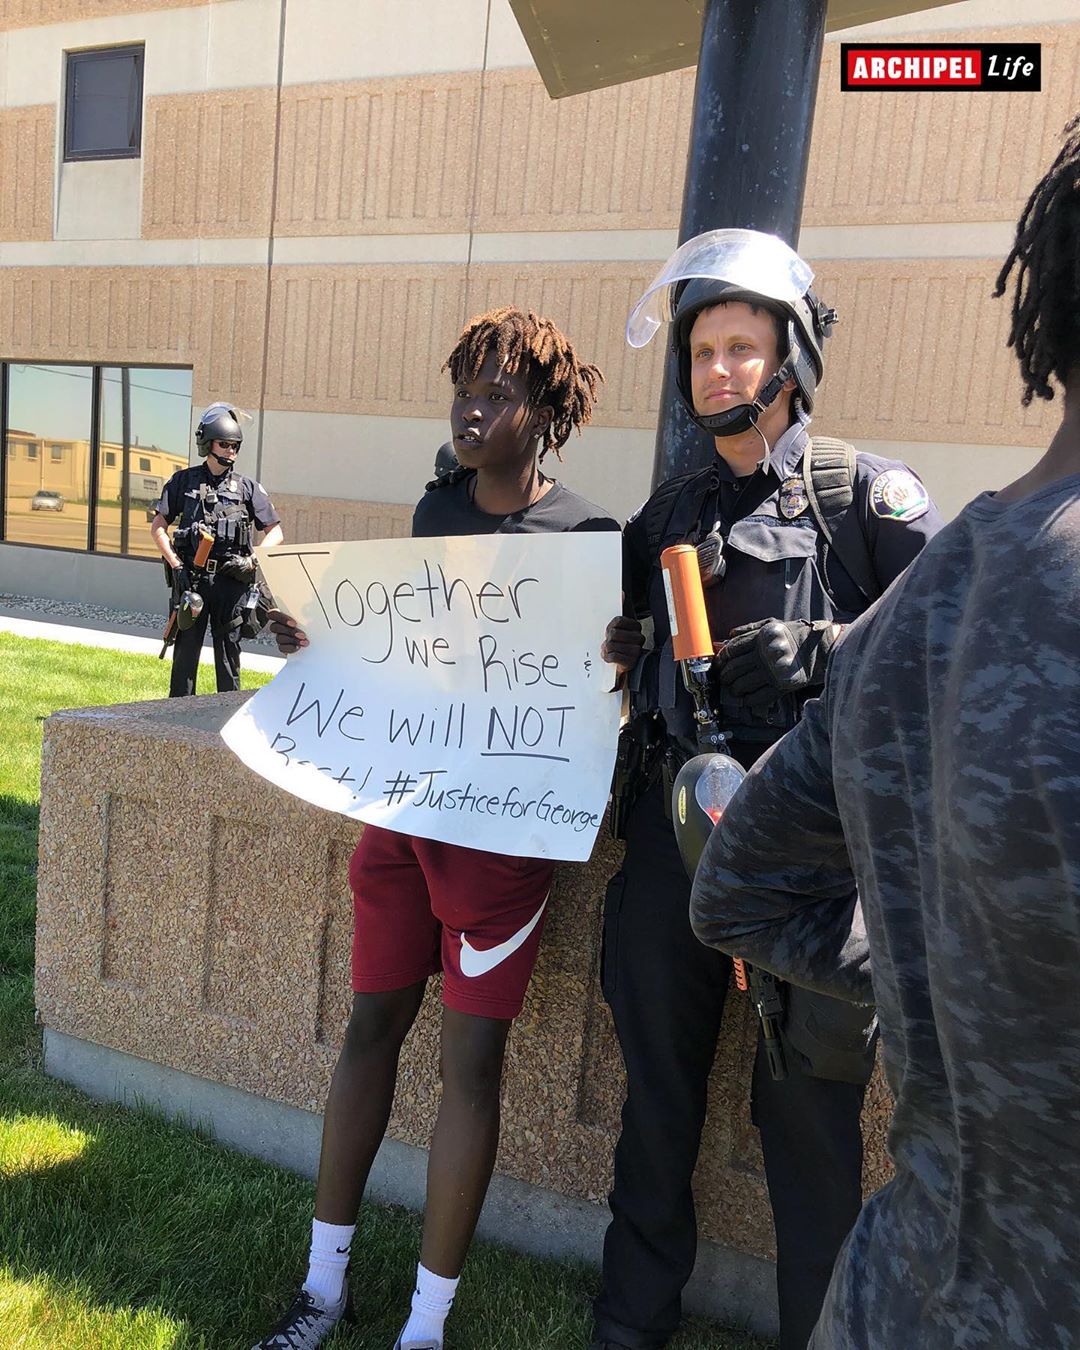 ARCHIPEL Life
Together
we Rise &
We will NOT
#JusticeforGeorge